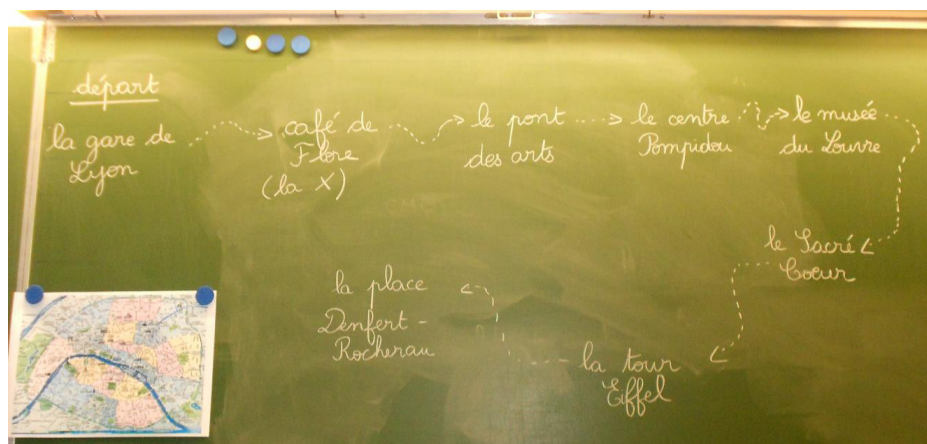 départ
la gare de
Lyon
café de
Flore
(la X)
le pont
des arts
le centre
Pompidou
le musée
du Louvre
le Sacré
Coeur
la tour
Eiffel
la place
Denfert-
Rocherau